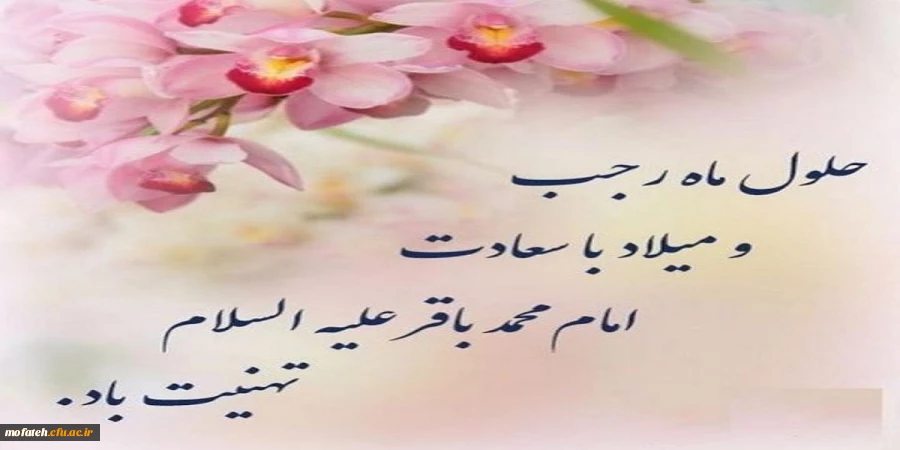 حلول ماه رجب
و میلاد با سعادت
امام محمد باقر علیه السلام
تهنیت باد.
mofateh.cfu.ac.ir